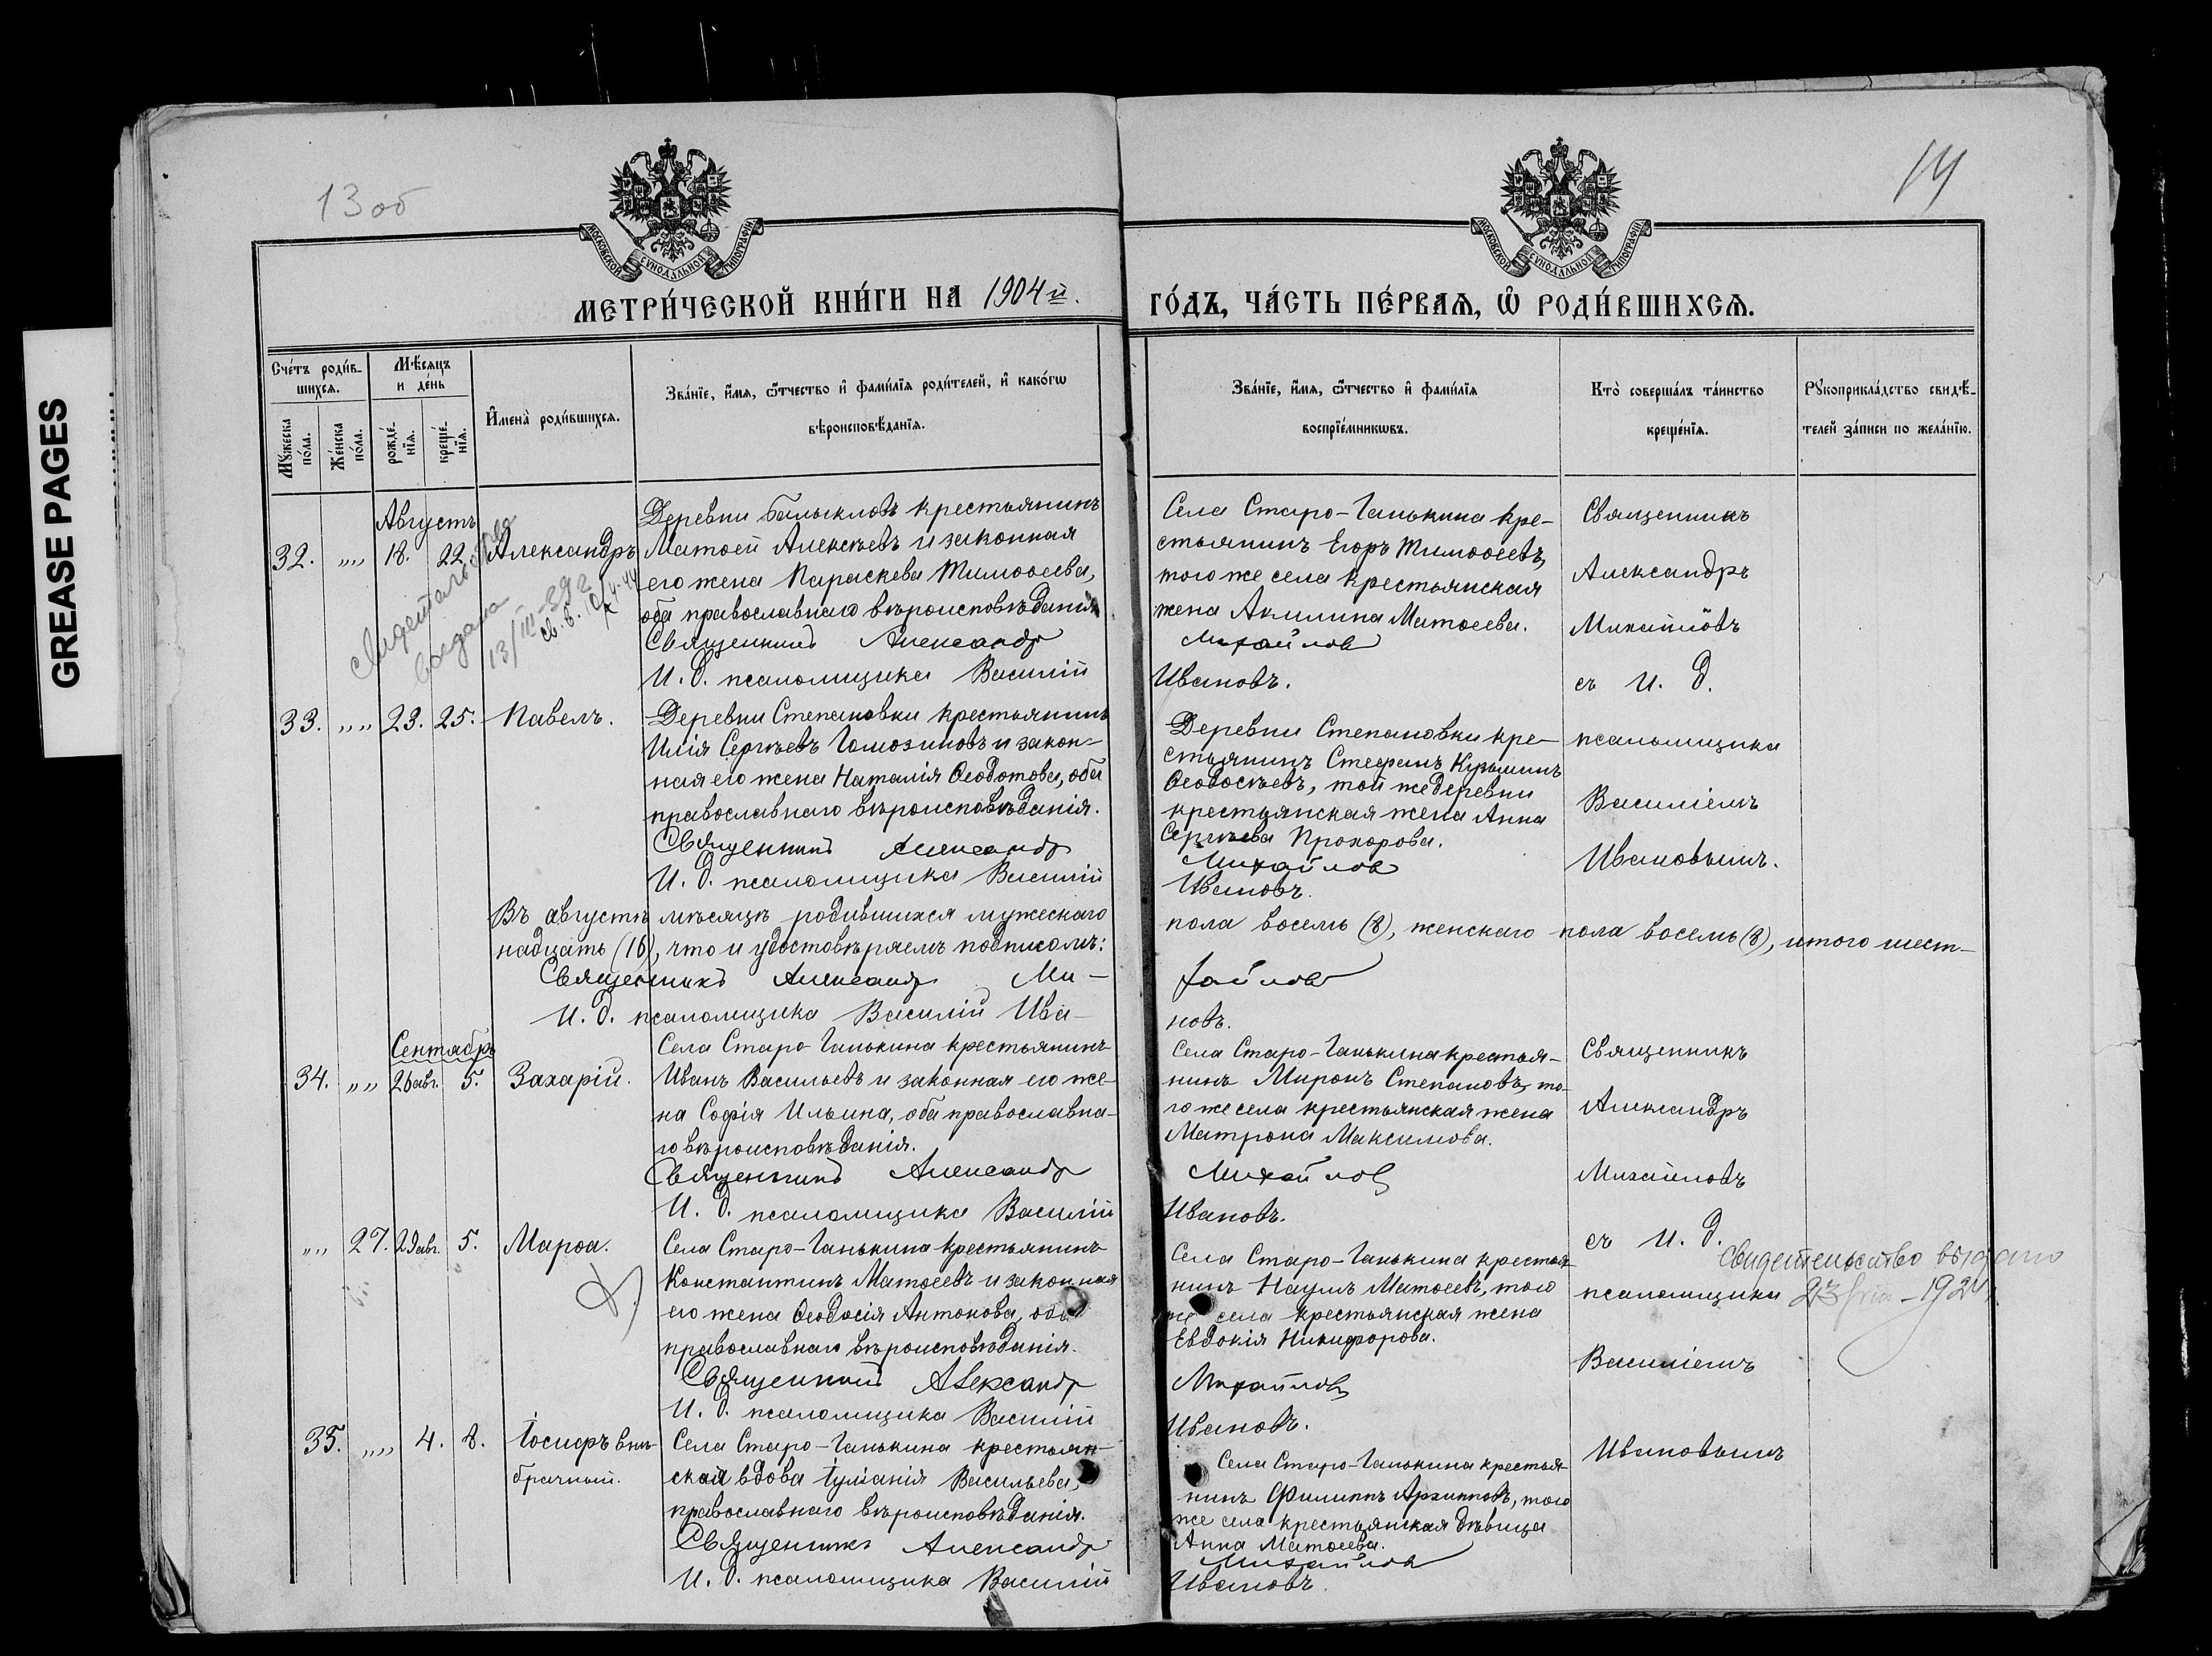 GREASE PAGES
13 об
14
МОСКОВСКОЙ СѴНОДАЛЬНОЙ ТИПОГРАФІИ
МОСКОВСКОЙ СѴНОДАЛЬНОЙ ТИПОГРАФІИ
МЕТРИ́ЧЕСКОЙ КНИ́ГИ НА 1904й.
ГО́ДЪ, ЧА́СТЬ ПЕ́РВАѦ, Ѡ РОДИ́ВШИХСѦ.
Сче́тъ роди́в-
шихсѧ.
Мꙋжеска по́ла.
Же́нска по́ла.
Мѣ́сѧцъ
и де́нь
рожде́-нїѧ.
креще́-нїѧ.
И҆мена̀ роди́вшихсѧ.
Зва́нїе, и҆́мѧ, ѻ҆́тчество и҆ фами́лїѧ роди́телей, и҆ како́гѡ
вѣроисповѣ́данїѧ.
Зва́нїе, и҆́мѧ, ѻ҆́тчество и҆ фами́лїѧ
воспрїе́мникѡвъ.
Кто̀ соверша́лъ та́инство
креще́нїѧ.
Рꙋкоприкла́дство свидѣ́-
телей за́писи по жела́нїю.
Августъ
32. „„ 18. 22. Александръ
Деревни Балыкловъ крестьянинъ
Матѳей Алексѣевъ и законная
его жена Параскева Тимоѳеева,
оба православнаго вѣроисповѣданія
Священникъ Александр
И. д. псаломщика Василій
Села Старо-Ганькина кре-
стьянинъ Егоръ Тимоѳеевъ,
того же села крестьянская
жена Акилина Матѳеева.
Михайлов
Ивановъ.
Священникъ
Александръ
Михайловъ
съ И. д.
псаломщика
Василіемъ
Ивановымъ.
выдана
13/IV-
33. „„ 23. 25. Павелъ.
Деревни Степановки крестьянинъ
Илія Сергѣевъ Гомозиновъ и закон-
ная его жена Наталія Ѳеодотова, оба
православнаго вѣроисповѣданія.
Священникъ Александр
И. д. псаломщика Василій
Деревни Степановки кре-
стьянинъ Стефанъ Кузьминъ
Ѳеодосѣевъ, той же деревни
крестьянская жена Анна
Сергѣева Прохорова.
Михайлов
Ивановъ.
Въ августѣ мѣсяцѣ родившихся мужескаго пола восемь (8), женскаго пола восемь (8), итого шест-
надцать (16), что и удостовѣряемъ подписомъ:
Священникъ Александр Ми-хайлов
И. д. псаломщика Василій Ива-новъ.
Сентябрь
34. „„ 26 авг. 5. Захарій.
Села Старо-Ганькина крестьянинъ
Иванъ Васильевъ и законная его же-
на Софія Ильина, оба православна-
го вѣроисповѣданія.
Священникъ Александр
И. д. псаломщика Василій
Села Старо-Ганькина крестья-
нинъ Миронъ Степановъ, то-
го же села крестьянская жена
Матрона Максимова.
Михайлов
Ивановъ.
Священникъ
Александръ
Михайловъ
съ И. д.
псаломщика
Василіемъ
Ивановымъ
„„ 27. 29 авг. 5. Марѳа.
Села Старо-Ганькина крестьянинъ
Константинъ Матѳеевъ и законная
его жена Ѳеодосія Антонова, оба
православнаго вѣроисповѣданія.
Священникъ Александр
И. д. псаломщика Василій
Села Старо-Ганькина крестья-
нинъ Наумъ Матѳеевъ, того
же села крестьянская жена
Евдокія Никифорова.
Михайловъ
Ивановъ.
Свидетельство выдано
35. „„ 4. 8. Іосифъ внѣ-
брачный.
Села Старо-Ганькина крестьян-
ская вдова Іуліанія Васильева,
православнаго вѣроисповѣданія.
Священникъ Александр
И. д. псаломщика Василій
Села Старо-Ганькина крестья-
нинъ Филиппъ Архиповъ, того
же села крестьянская дѣвица
Анна Матѳеева.
Михайлов
Ивановъ.